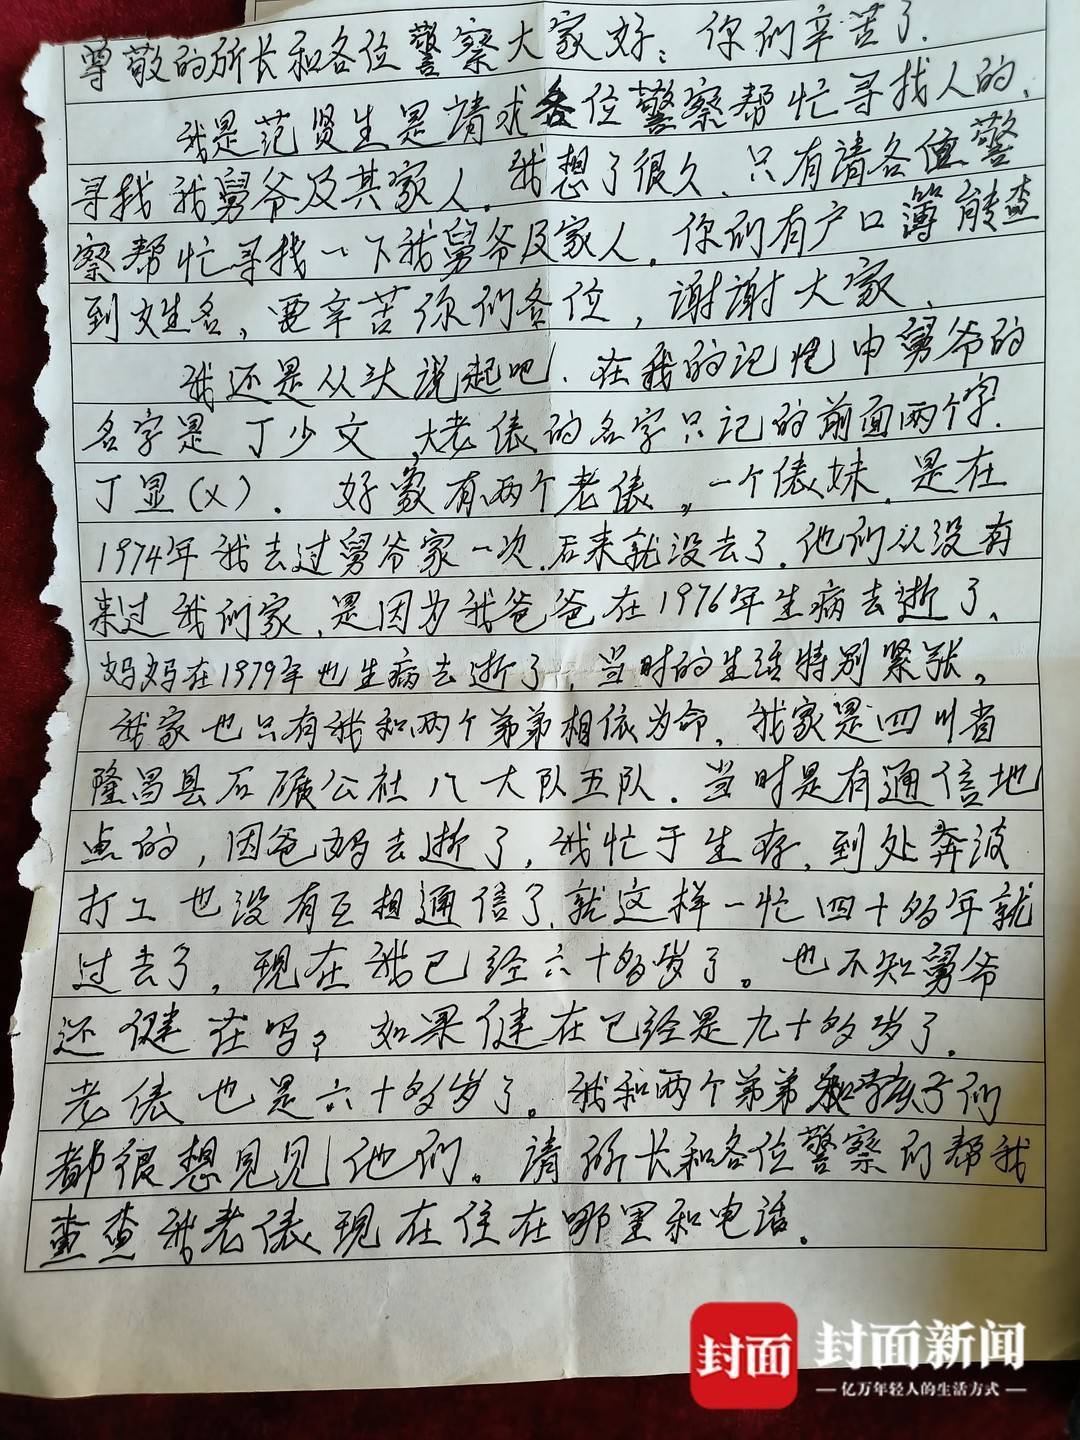 尊敬的所长和各位警察大家好：你们辛苦了.
我是范贤生是请求各位警察帮忙寻找人的、
寻找我舅爷及其家人。我想了很久、只有请各位警
察帮忙寻找一下我舅爷及家人. 你们有户口簿能查
到姓名，要辛苦你们各位，谢谢大家、
我还是从头说起吧. 在我的记忆中舅爷的
名字是丁少文，大老俵的名字只记的前面两个字.
丁显(x). 好象有两个老俵，一个俵妹. 是在
1974年我去过舅爷家一次. 后来就没去了. 他们从没有
来过我们家、是因为我爸爸在1976年生病去逝了、
妈妈在1979年也生病去逝了，当时的生活特别紧张。
我家也只有我和两个弟弟相依为命，我家是四川省
隆昌县石碾公社八大队五队. 当时是有通信地
点的，因爸妈去逝了，我忙于生存，到处奔波
打工也没有互相通信了. 就这样一忙四十多年就
过去了，现在我已经六十多岁了。也不知舅爷
还健在吗？如果健在已经是九十多岁了.
老俵也是六十多岁了。我和两个弟弟和孩子们
都很想见见他们。请所长和各位警察们帮我
查查我老俵现在住在哪里和电话.
封面
封面新闻
亿万年轻人的生活方式